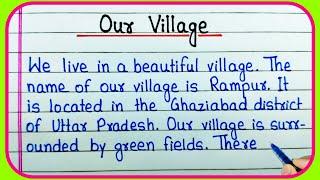 Our Village
We live in a beautiful village. The
name of our village is Rampur. It
is located in the Ghaziabad district
of Uttar Pradesh. Our village is surr-
ounded by green fields. There